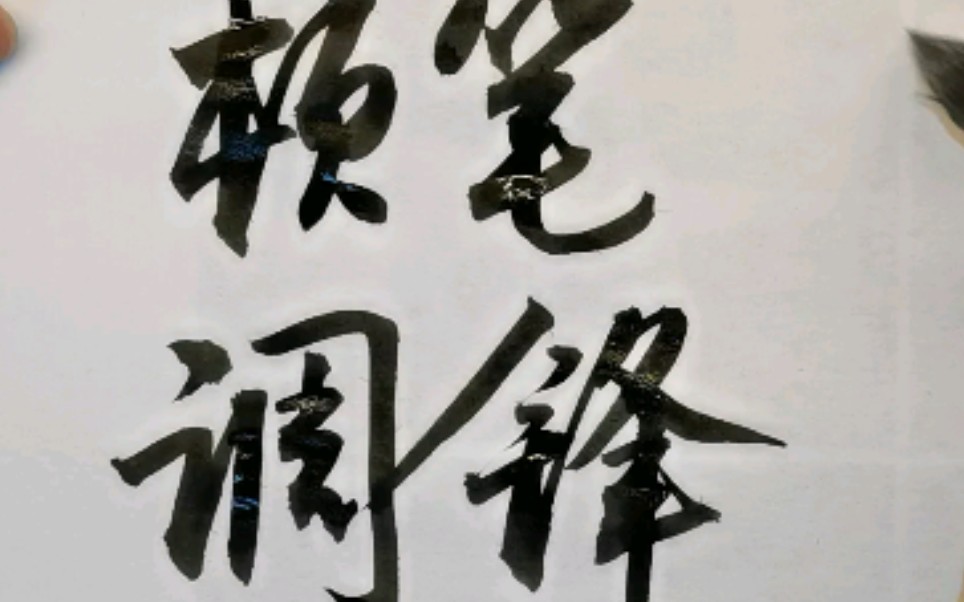 顿笔
调锋